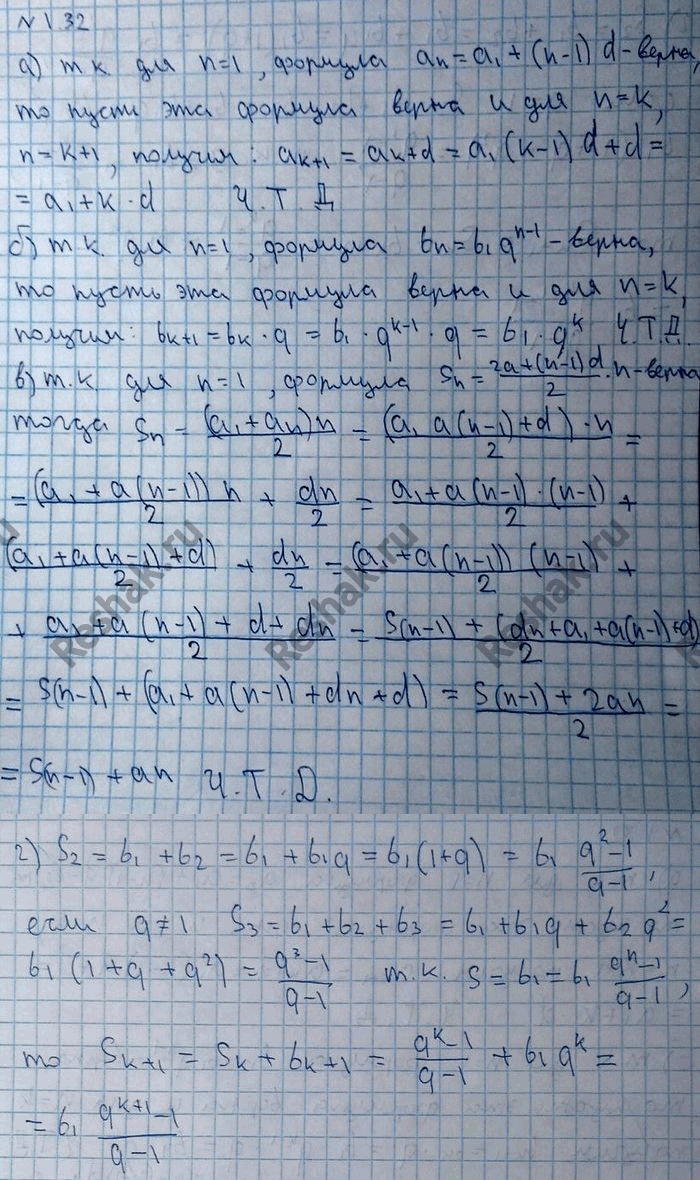 N 1.32
а) т к для n=1, формула aₙ=a₁+(n-1) d - верна,
то пусть эта формула верна и для n=k,
n=k+1, получим: aₖ₊₁ = aₖ+d = a₁(k-1)d+d =
= a₁+k·d Ч.Т.Д
б) т к. для n=1, формула bₙ=b₁qⁿ⁻¹ - верна,
то пусть эта формула верна и для n=k,
получим: bₖ₊₁ = bₖ·q = b₁·qᵏ⁻¹·q = b₁·qᵏ Ч.Т.Д.
в) т.к. для n=1, формула Sₙ = (2a+(n-1)d)/2·n - верна
тогда Sₙ = (a₁+aₙ)n/2 = (a₁ a(n-1)+d)·n/2 =
= (a₁+a(n-1))n/2 + dn/2 = a₁+a(n-1)·(n-1)/2 +
(a₁+a(n-1)+d)/2 + dn/2 = (a₁+a(n-1))(n-1)/2 +
+ a₁+a(n-1)+d+dn/2 = S(n-1)+(dn+a₁+a(n-1)+d)/2
= S(n-1)+(a₁+a(n-1)+dn+d) = S(n-1)+2an/2 =
= S(n-1)+an Ч.Т.Д.
2) S₂ = b₁+b₂ = b₁+b₁q = b₁(1+q) = b₁ q²-1/q-1,
если q≠1 S₃ = b₁+b₂+b₃ = b₁+b₁q+b₂q² =
b₁(1+q+q²) = q³-1/q-1 т.к. S=b₁=b₁ qⁿ-1/q-1,
то Sₖ₊₁ = Sₖ+bₖ₊₁ = qᵏ-1/q-1 + b₁qᵏ =
= b₁ qᵏ⁺¹-1/q-1
Reshak.ru
Reshak.ru
Reshak.ru